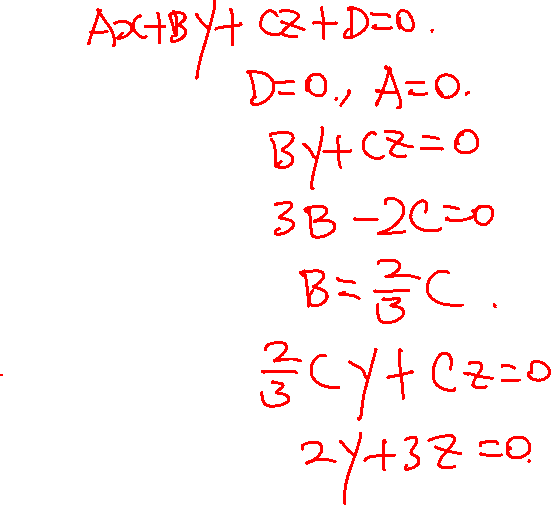 Ax+By+Cz+D=0.
D=0., A=0.
By+Cz=0
3B-2C=0
B=2/3 C.
2/3 Cy+Cz=0
2y+3z=0.